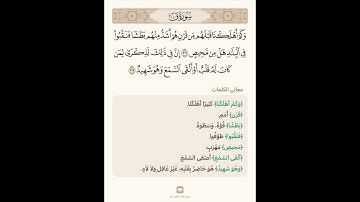 سُورَةُ قٓ
وَكَمْ أَهْلَكْنَا قَبْلَهُم مِّن قَرْنٍ هُمْ أَشَدُّ مِنْهُم بَطْشًا فَنَقَّبُوا۟
فِى ٱلْبِلَٰدِ هَلْ مِن مَّحِيصٍ ٣٦ إِنَّ فِى ذَٰلِكَ لَذِكْرَىٰ لِمَن
كَانَ لَهُۥ قَلْبٌ أَوْ أَلْقَى ٱلسَّمْعَ وَهُوَ شَهِيدٌ ٣٧
معاني الكلمات
﴿وَكَمْ أَهْلَكْنَا﴾ كَثِيرًا أَهْلَكْنَا.
﴿قَرْنٍ﴾ أُمَمٍ.
﴿بَطْشًا﴾ قُوَّةً، وَسَطْوَةً.
﴿فَنَقَّبُوا﴾ طَوَّفُوا.
﴿مَحِيصٍ﴾ مَهْرَبٍ.
﴿أَلْقَى السَّمْعَ﴾ أَصْغَى السَّمْعَ.
﴿وَهُوَ شَهِيدٌ﴾ هُوَ حَاضِرٌ بِقَلْبِهِ، غَيْرُ غَافِلٍ وَلَا لَاهٍ.